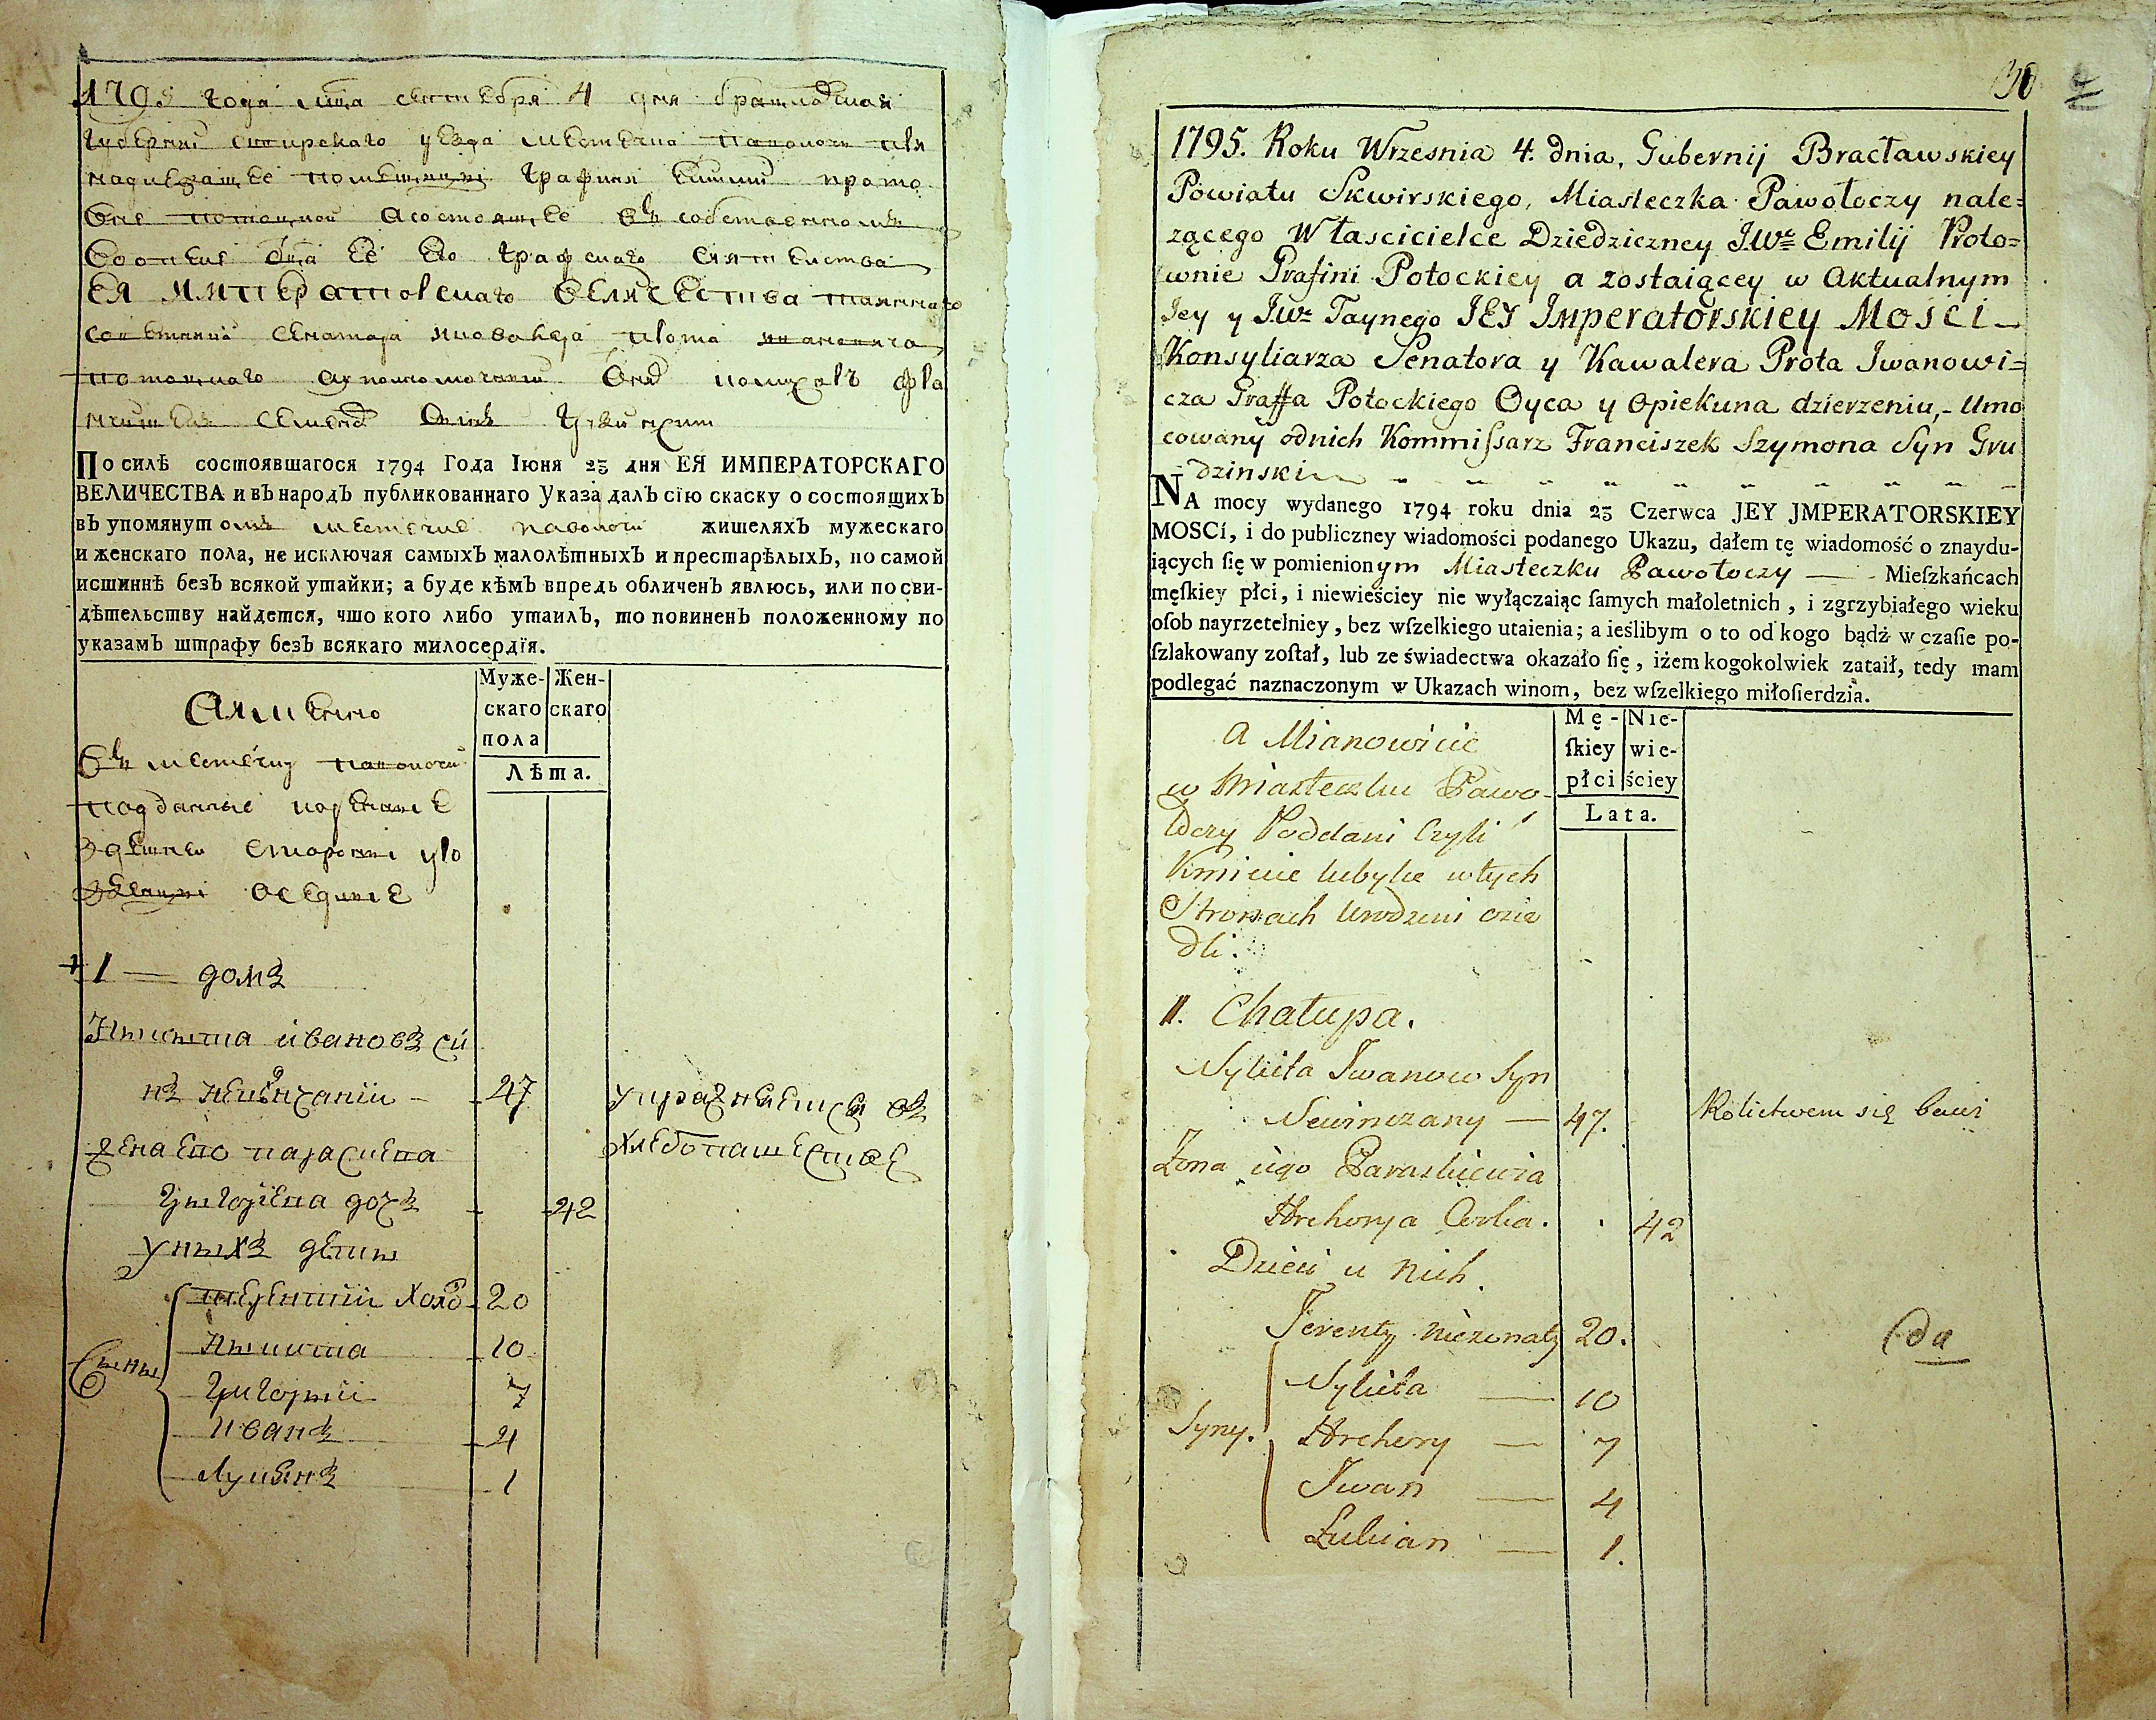 1795 года мца сентебря 4 дня брацлавской
губернии сквирскаго уезда местечка паволочи при
надлежащее помещице графини емилии прото
вне потоцкой а состоящее въ собственномъ
Ея императорскаго величества тайнаго
советника сенатора и кавалера прота ивановича
потоцкаго
По силѣ состоявшагося 1794 Года Іюня 23 дня ЕЯ ИМПЕРАТОРСКАГО
ВЕЛИЧЕСТВА и въ народъ публикованнаго Указа далъ сїю скаску о состоящихъ
въ упомянутомъ местечке паволочи жителяхъ мужескаго
и женскаго пола, не исключая самыхъ малолѣтныхъ и престарѣлыхъ, по самой
истиннѣ безъ всякой утайки; а буде кѣмъ впредь обличенъ явлюсь, или по сви-
дѣтельству найдется, что кого либо утаилъ, то повиненъ положенному по
указамъ штрафу безъ всякаго милосердїя.
Муже-скаго пола
Жен-скаго
Лѣта.
А имянно
въ местечку паволочи
подданные коренные
здешнее стороны уро
женцы оседлые
1 — домъ
Никита ивановъ си
нъ невѣнчании — 47 упражняется въ
жена его параскева хлебопашестве
григориева дочъ 42
у нихъ дети
терентии холо 20
никита 10
Сыны григории 7
иванъ 4
лукьянъ 1
30
1795. Roku Wrzesnia 4. dnia, Gubernij Bracławskiey
Powiatu Skwirskiego, Miasteczka Pawołoczy nale=
zącego Włascicielce Dziedziczney JWe Emilij Proto=
wnie Grafini Potockiey a zostaiącey w Aktualnym
Jey y JWo Taynego JEY Imperatorskiey Mosci
Konsyliarza Senatora y Kawalera Prota Iwanowi=
cza Graffa Potockiego Oyca y Opiekuna dzierzeniu,- Umo
cowany odnich Kommissarz Franciszek Szymona Syn Gru
-dzinski
NA mocy wydanego 1794 roku dnia 23 Czerwca JEY JMPERATORSKIEY
MOSCí, i do publiczney wiadomości podanego Ukazu, dałem tę wiadomość o znaydu-
iących ſię w pomienionym Miasteczku Pawołoczy — Mieſzkańcach
męſkiey płci, i niewieściey nie wyłączaiąc ſamych małoletnich, i zgrzybiałego wieku
oſob nayrzetelniey, bez wſzelkiego utaienia; a ieślibym o to od kogo bądź w czaſie po-
ſzlakowany zoſtał, lub ze świadectwa okazało ſię, iżem kogokolwiek zataił, tedy mam
podlegać naznaczonym w Ukazach winom, bez wſzelkiego miłoſierdzia.
Mę-ſkiey płci
Nie-wie-ściey
Lata.
A Mianowicie
w Miasteczku Pawo-
łoczy Poddani Czyli
Kmiecie lubylie w tych
Stronach Urodzeni osie
dli.
1. Chałupa.
Nykita Iwanow Syn
Newinczany — 47. Rolictwem się bawi
Zona iego Paraskiewia
Hrehorya Corka. 42
Dzieci u nich.
Terenty niezonaty 20.
Nykita — 10
Syny. Hrehory — 7
Iwan — 4
Łukian — 1.